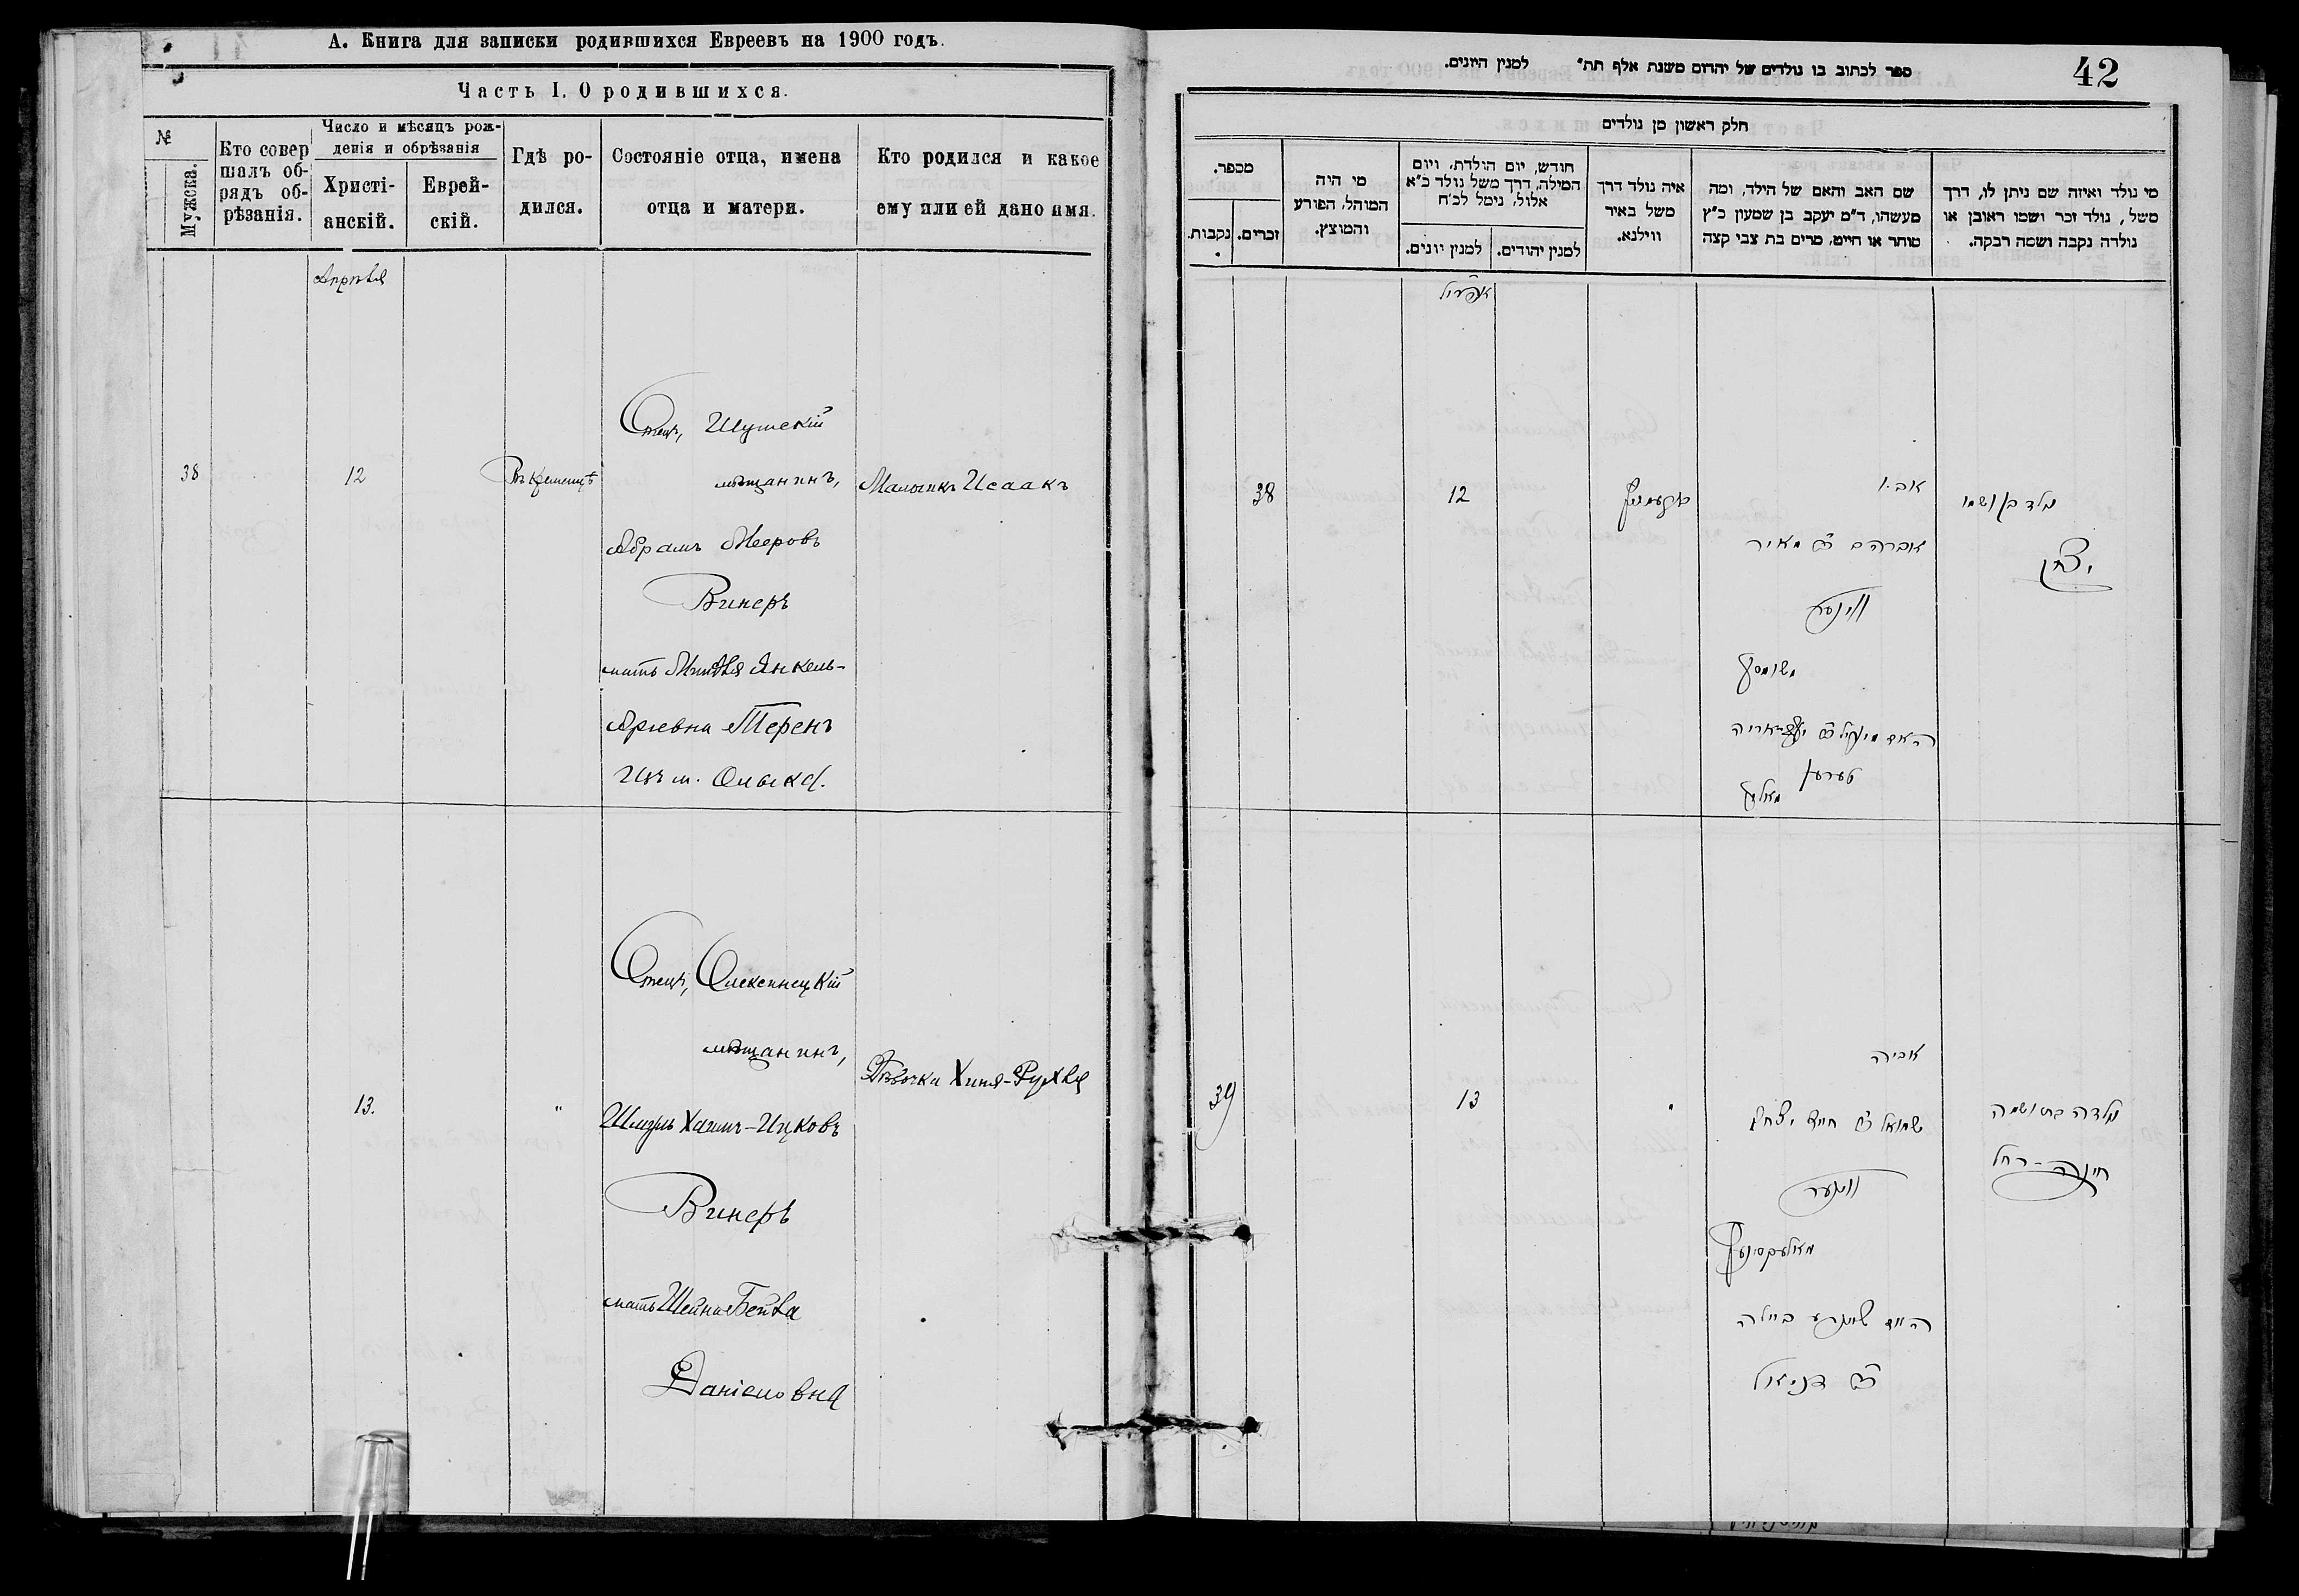 А. Книга для записки родившихся Евреевъ на 1900 годъ.
Часть I. О родившихся.
№
Мужска.
Кто совер
шалъ об-
рядъ об-
рѣзанія.
Число и мѣсяцъ рож-
денія и обрѣзанія
Христі-
анскій.
Еврей-
скій.
Гдѣ ро-
дился.
Состояніе отца, имена
отца и матери.
Кто родился и какое
ему или ей дано имя.
Апрѣля
38
12
Въ Кременцѣ
Отецъ, Шумскій
мѣщанинъ,
Абрамъ Мееровъ
Винеръ
мать Янкель-
Арьевна Теренъ
Изъ м. Олыка.
Мальчикъ Исаакъ
13.
"
Отецъ, Олексинецкій
мѣщанинъ,
Шмуль Хаимъ-Ицковъ
Винеръ
мать Шейна Бейла
Даніеловна
Дѣвочка Хиня-Рухля
42
ספר לכתוב בו נולדים של יהדום משנת אלף תת״ למנין היונים.
חלק ראשון מן נולדים
מספר.
נקבות.
זכרים.
מי היה
המוהל, הפורע
והמוצץ.
חודש, יום הולדת, ויום
המילה, דרך משל נולד כ״א
אלול, נימל לכ״ח
למנין יונים.
למנין יהודים.
איה נולד דרך
משל באיר
ווילנא.
שם האב והאם של הילד, ומה
מעשהו, ד״מ יעקב בן שמעון כ״ץ
סוחר או חייט, מרים בת צבי קצה
מי נולד ואיזה שם ניתן לו, דרך
משל, נולד זכר ושמו ראובן או
נולדה נקבה ושמה רבקה.
אפריל
38
12
אביו
אברהם ב״ר מאיר
ווינער
משומסק
טערען
נולד בן ושמו
יצחק
39
13
אביה
שמואל ב״ר חיים יצחק
ווינער
מאלעקסיניץ
האם שיינע ביילה
ב״ר דניאל
נולדה בת ושמה
חינה-רחל